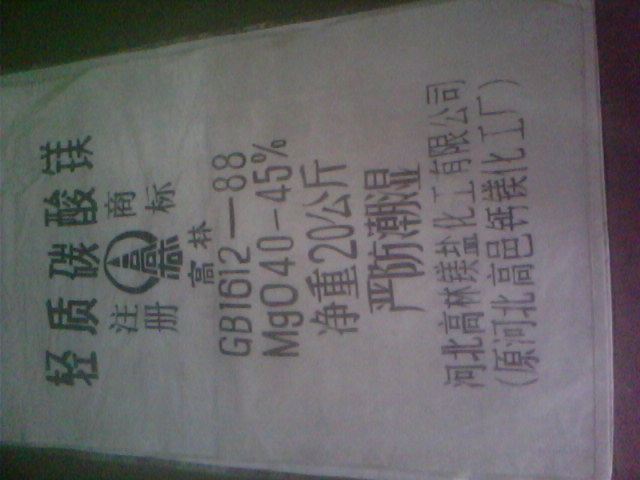 轻质碳酸镁
注册 商标
高林
GB1612—88
MgO40-45%
净重20公斤
严防潮湿
河北高林镁盐化工有限公司
(原河北高邑钙镁化工厂)